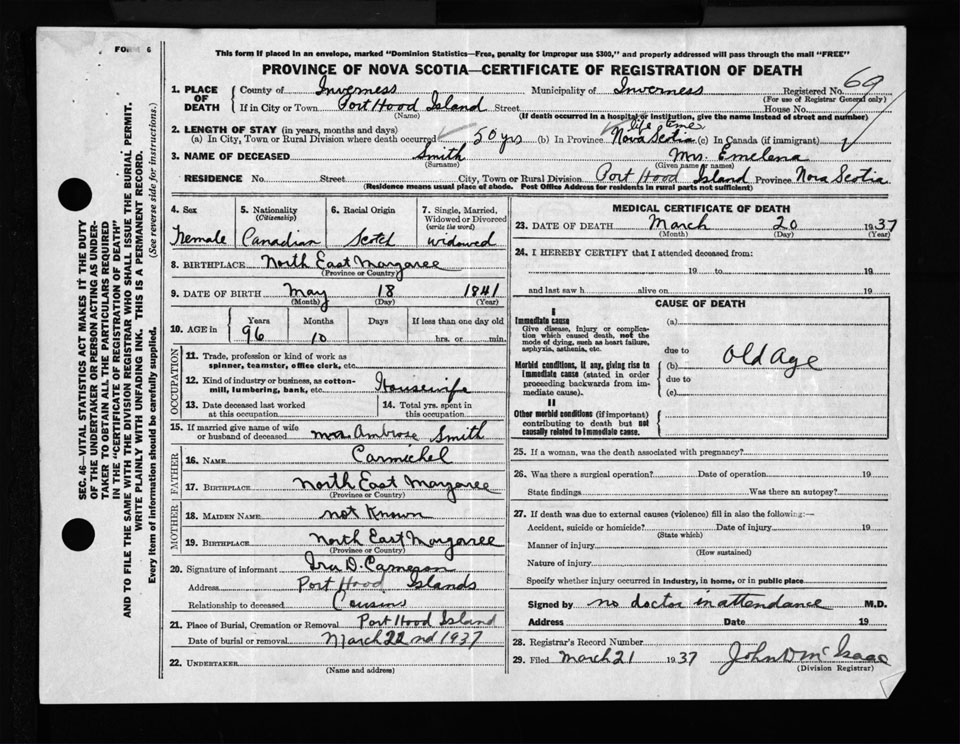 FORM 6
This form if placed in an envelope, marked "Dominion Statistics—Free, penalty for improper use $300," and properly addressed will pass through the mail "FREE"
PROVINCE OF NOVA SCOTIA—CERTIFICATE OF REGISTRATION OF DEATH
69
1. PLACE OF DEATH County of Inverness Municipality of Inverness Registered No.
(For use of Registrar General only)
If in City or Town Port Hood Island Street House No.
(Name) (If death occurred in a hospital or institution, give the name instead of street and number)
2. LENGTH OF STAY (in years, months and days)
(a) In City, Town or Rural Division where death occurred 50 yrs (b) In Province life time Nova Scotia (c) In Canada (if immigrant)
3. NAME OF DECEASED Smith Mrs. Emelena
(Surname) (Given name or names)
RESIDENCE No. Street City, Town or Rural Division Port Hood Island Province Nova Scotia
(Residence means usual place of abode. Post Office Address for residents in rural parts not sufficient)
4. Sex Female
5. Nationality (Citizenship) Canadian
6. Racial Origin Scotch
7. Single, Married, Widowed or Divorced (write the word) widowed
8. BIRTHPLACE North East Margaree
(Province or Country)
9. DATE OF BIRTH May 18 1841
(Month) (Day) (Year)
10. AGE in Years 96 Months 10 Days If less than one day old hrs. or min.
OCCUPATION
11. Trade, profession or kind of work as spinner, teamster, office clerk, etc.
12. Kind of industry or business, as cotton-mill, lumbering, bank, etc. Housewife
13. Date deceased last worked at this occupation
14. Total yrs. spent in this occupation
15. If married give name of wife or husband of deceased Mrs Ambrose Smith
FATHER
16. NAME Carmichel
17. BIRTHPLACE North East Margaree
(Province or Country)
MOTHER
18. MAIDEN NAME not Known
19. BIRTHPLACE North East Margaree
(Province or Country)
20. Signature of informant Ira D. Cameron
Address Port Hood Islands
Relationship to deceased Cousins
21. Place of Burial, Cremation or Removal Port Hood Island
Date of burial or removal March 22nd 1937
22. UNDERTAKER
(Name and address)
MEDICAL CERTIFICATE OF DEATH
23. DATE OF DEATH March 20 1937
(Month) (Day) (Year)
24. I HEREBY CERTIFY that I attended deceased from:
19 to 19
and last saw h alive on 19
CAUSE OF DEATH
I
Immediate cause (a)
Give disease, injury or complication which caused death, not the mode of dying, such as heart failure, asphyxia, asthenia, etc.
due to
Morbid conditions, if any, giving rise to immediate cause (stated in order proceeding backwards from immediate cause). (b) Old Age
due to
(c)
II
Other morbid conditions (if important) contributing to death but not causally related to immediate cause.
25. If a woman, was the death associated with pregnancy?
26. Was there a surgical operation? Date of operation 19
State findings Was there an autopsy?
27. If death was due to external causes (violence) fill in also the following:—
Accident, suicide or homicide? Date of injury 19
(State which)
Manner of injury
(How sustained)
Nature of injury
Specify whether injury occurred in industry, in home, or in public place
Signed by no doctor in attendance M.D.
Address Date 19
28. Registrar's Record Number
29. Filed March 21 1937 John D McIsaac
(Division Registrar)
SEC. 46—VITAL STATISTICS ACT MAKES IT THE DUTY
OF THE UNDERTAKER OR PERSON ACTING AS UNDER-
TAKER TO OBTAIN ALL THE PARTICULARS REQUIRED
IN THE "CERTIFICATE OF REGISTRATION OF DEATH"
AND TO FILE THE SAME WITH THE DIVISION REGISTRAR WHO SHALL ISSUE THE BURIAL PERMIT.
WRITE PLAINLY WITH UNFADING INK. THIS IS A PERMANENT RECORD.
Every item of information should be carefully supplied. (See reverse side for instructions.)